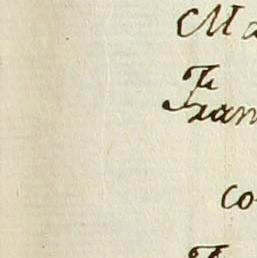 Ma
Fran
co
F